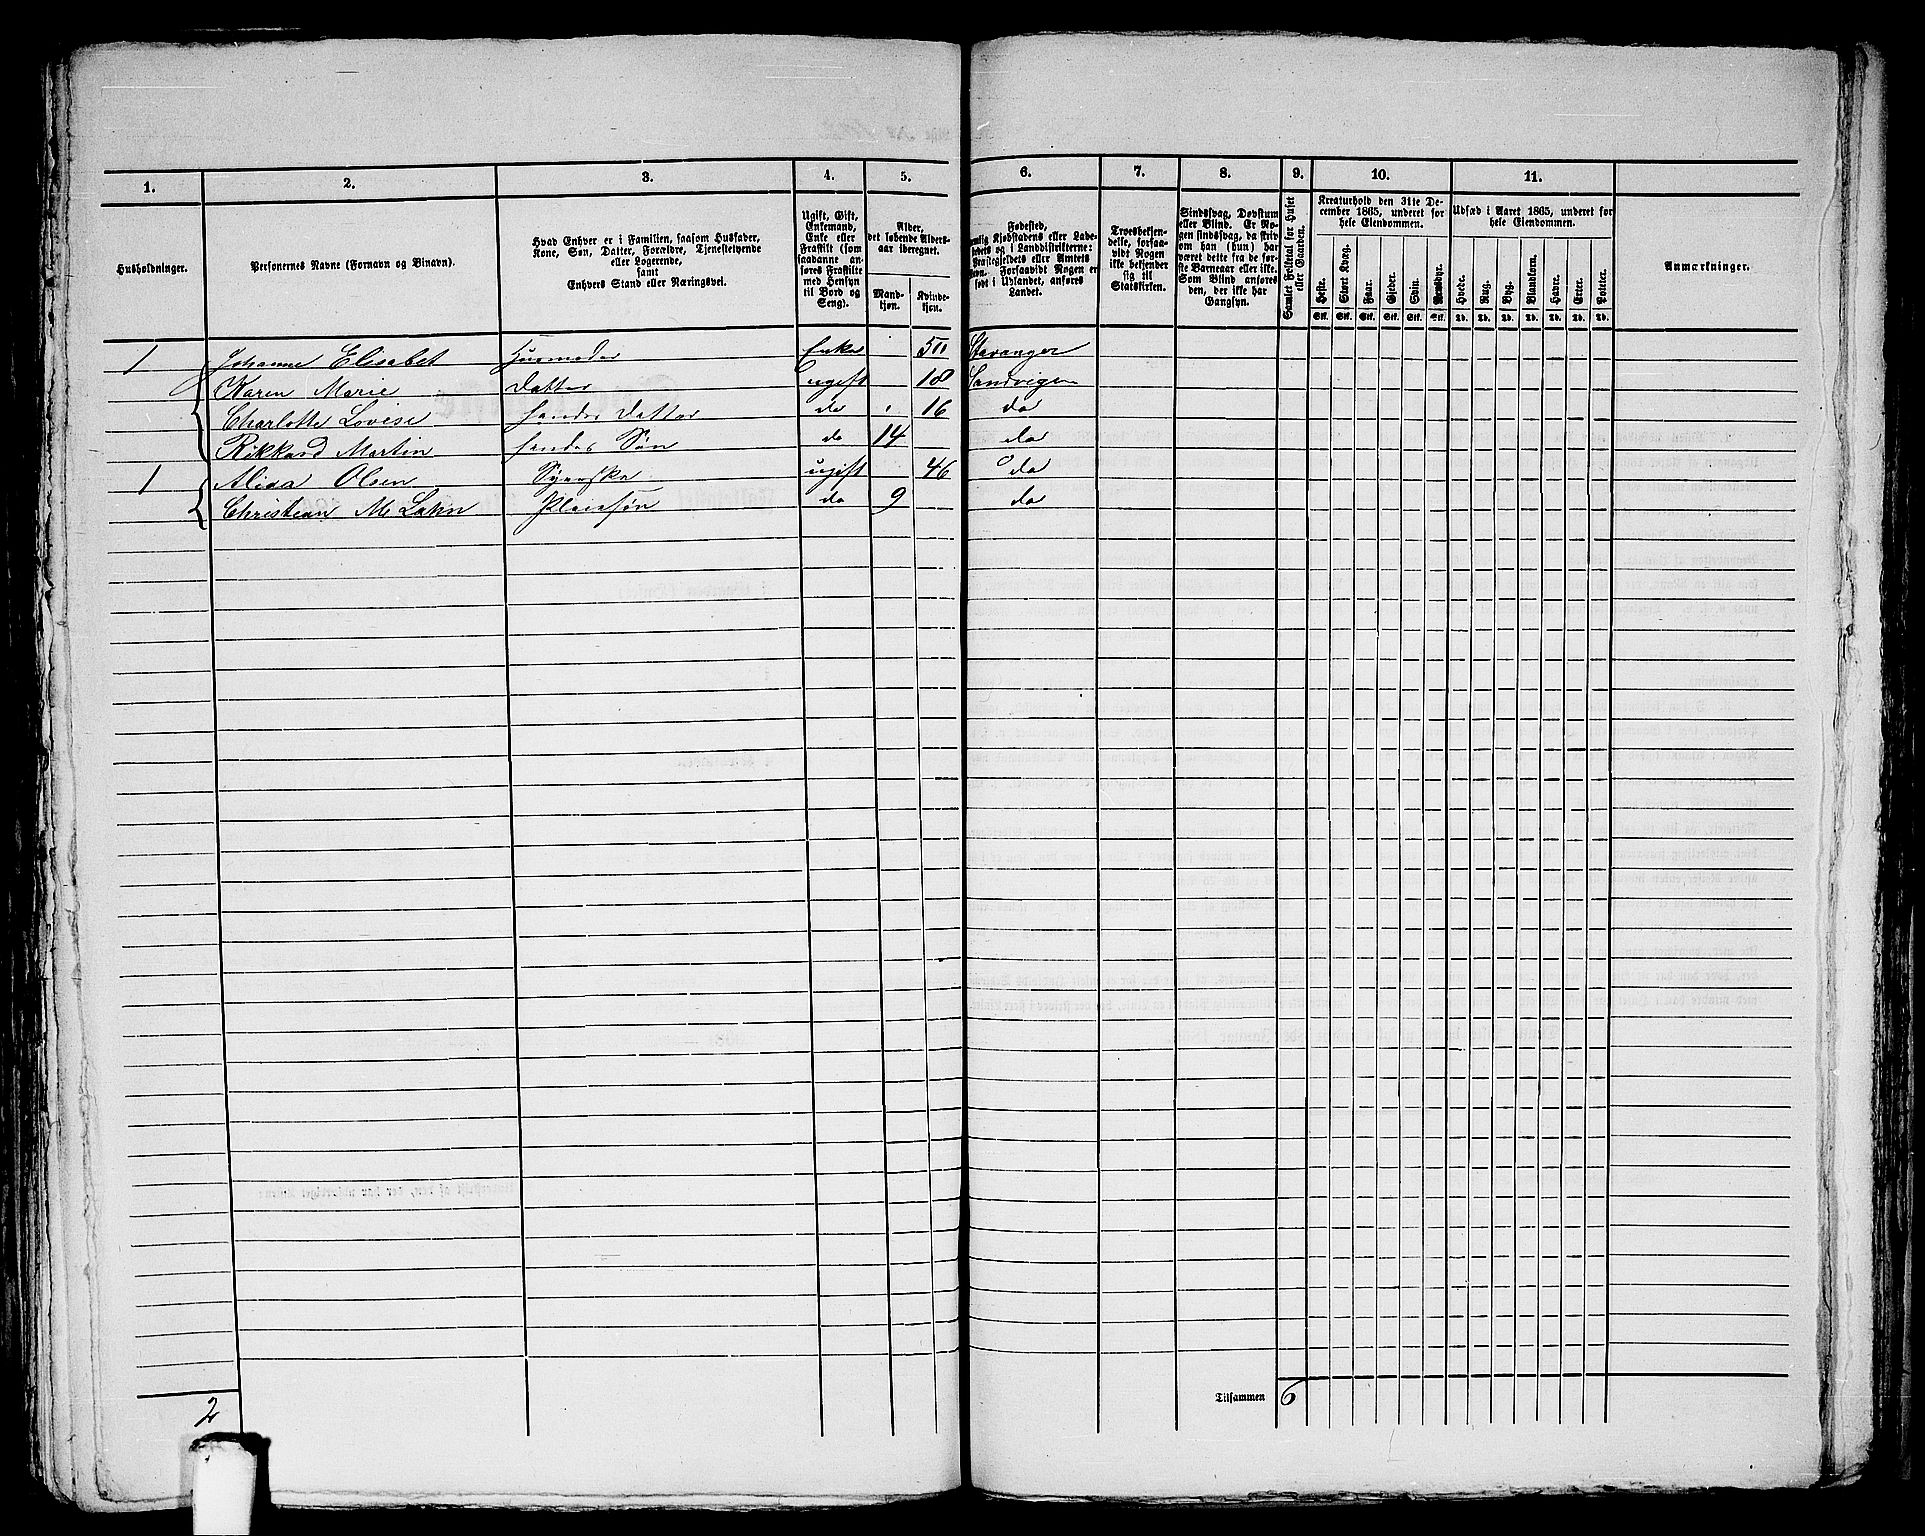 1. 2. 3. 4. 5. 6. 7. 8. 9. 10. 11.
Husholdninger.
Personernes Navne (Fornavn og Binavn).
Hvad Enhver er i Familien, saasom Husfader,
Kone, Søn, Datter, Forældre, Tjenestetyende
eller Logerende,
samt
Enhvers Stand eller Næringsvei.
Ugift, Gift,
Enkemand,
Enke eller
Fraskilt (som
saadanne an-
føres Fraskilte
med Hensyn
til Bord og
Seng).
Alder,
det løbende Alders-
aar iberegnet.
Mand-
kjøn.
Kvinde-
kjøn.
Fødested,
nemlig Kjøbstadens eller Lade-
stedets og i Landdistrikterne:
Præstegjeldets eller Amtets
Navn. Forsaavidt Nogen er
født i Udlandet, anføres
Landet.
Troesbekjen-
delse, forsaa-
vidt Nogen
ikke bekjender
sig til
Statskirken.
Sindssvag, Døvstum
eller Blind. Er No-
gen sindssvag, da skriv
om han (hun) har
været dette fra de før-
ste Barneaar eller ikke.
Som Blind anføres
den, der ikke har
Gangsyn.
Samlet Folketal for Huset
eller Gaarden.
Kreaturhold den 31te De-
cember 1865, underet for
hele Eiendommen.
Heste. Stort Kvæg. Faar. Gjeder. Svin. Rensdyr.
Stk. Stk. Stk. Stk. Stk. Stk.
Udsæd i Aaret 1865, underet for
hele Eiendommen.
Hvede. Rug. Byg. Blandkorn. Havre. Erter. Poteter.
Td. Td. Td. Td. Td. Td. Td.
Anmærkninger.
1 Johanne Elisabet Husmoder Enke 50 Stavanger
Karen Marie Datter ugift 18 Sandvigen
Charlotte Lovise hendes Datter do 16 do
Rikkard Martin hendes Søn do 14 do
1 Alida Olsen Syerske ugift 46 do
Christian M Lahn Pleiesøn do 9 do
Tilsammen 6
2